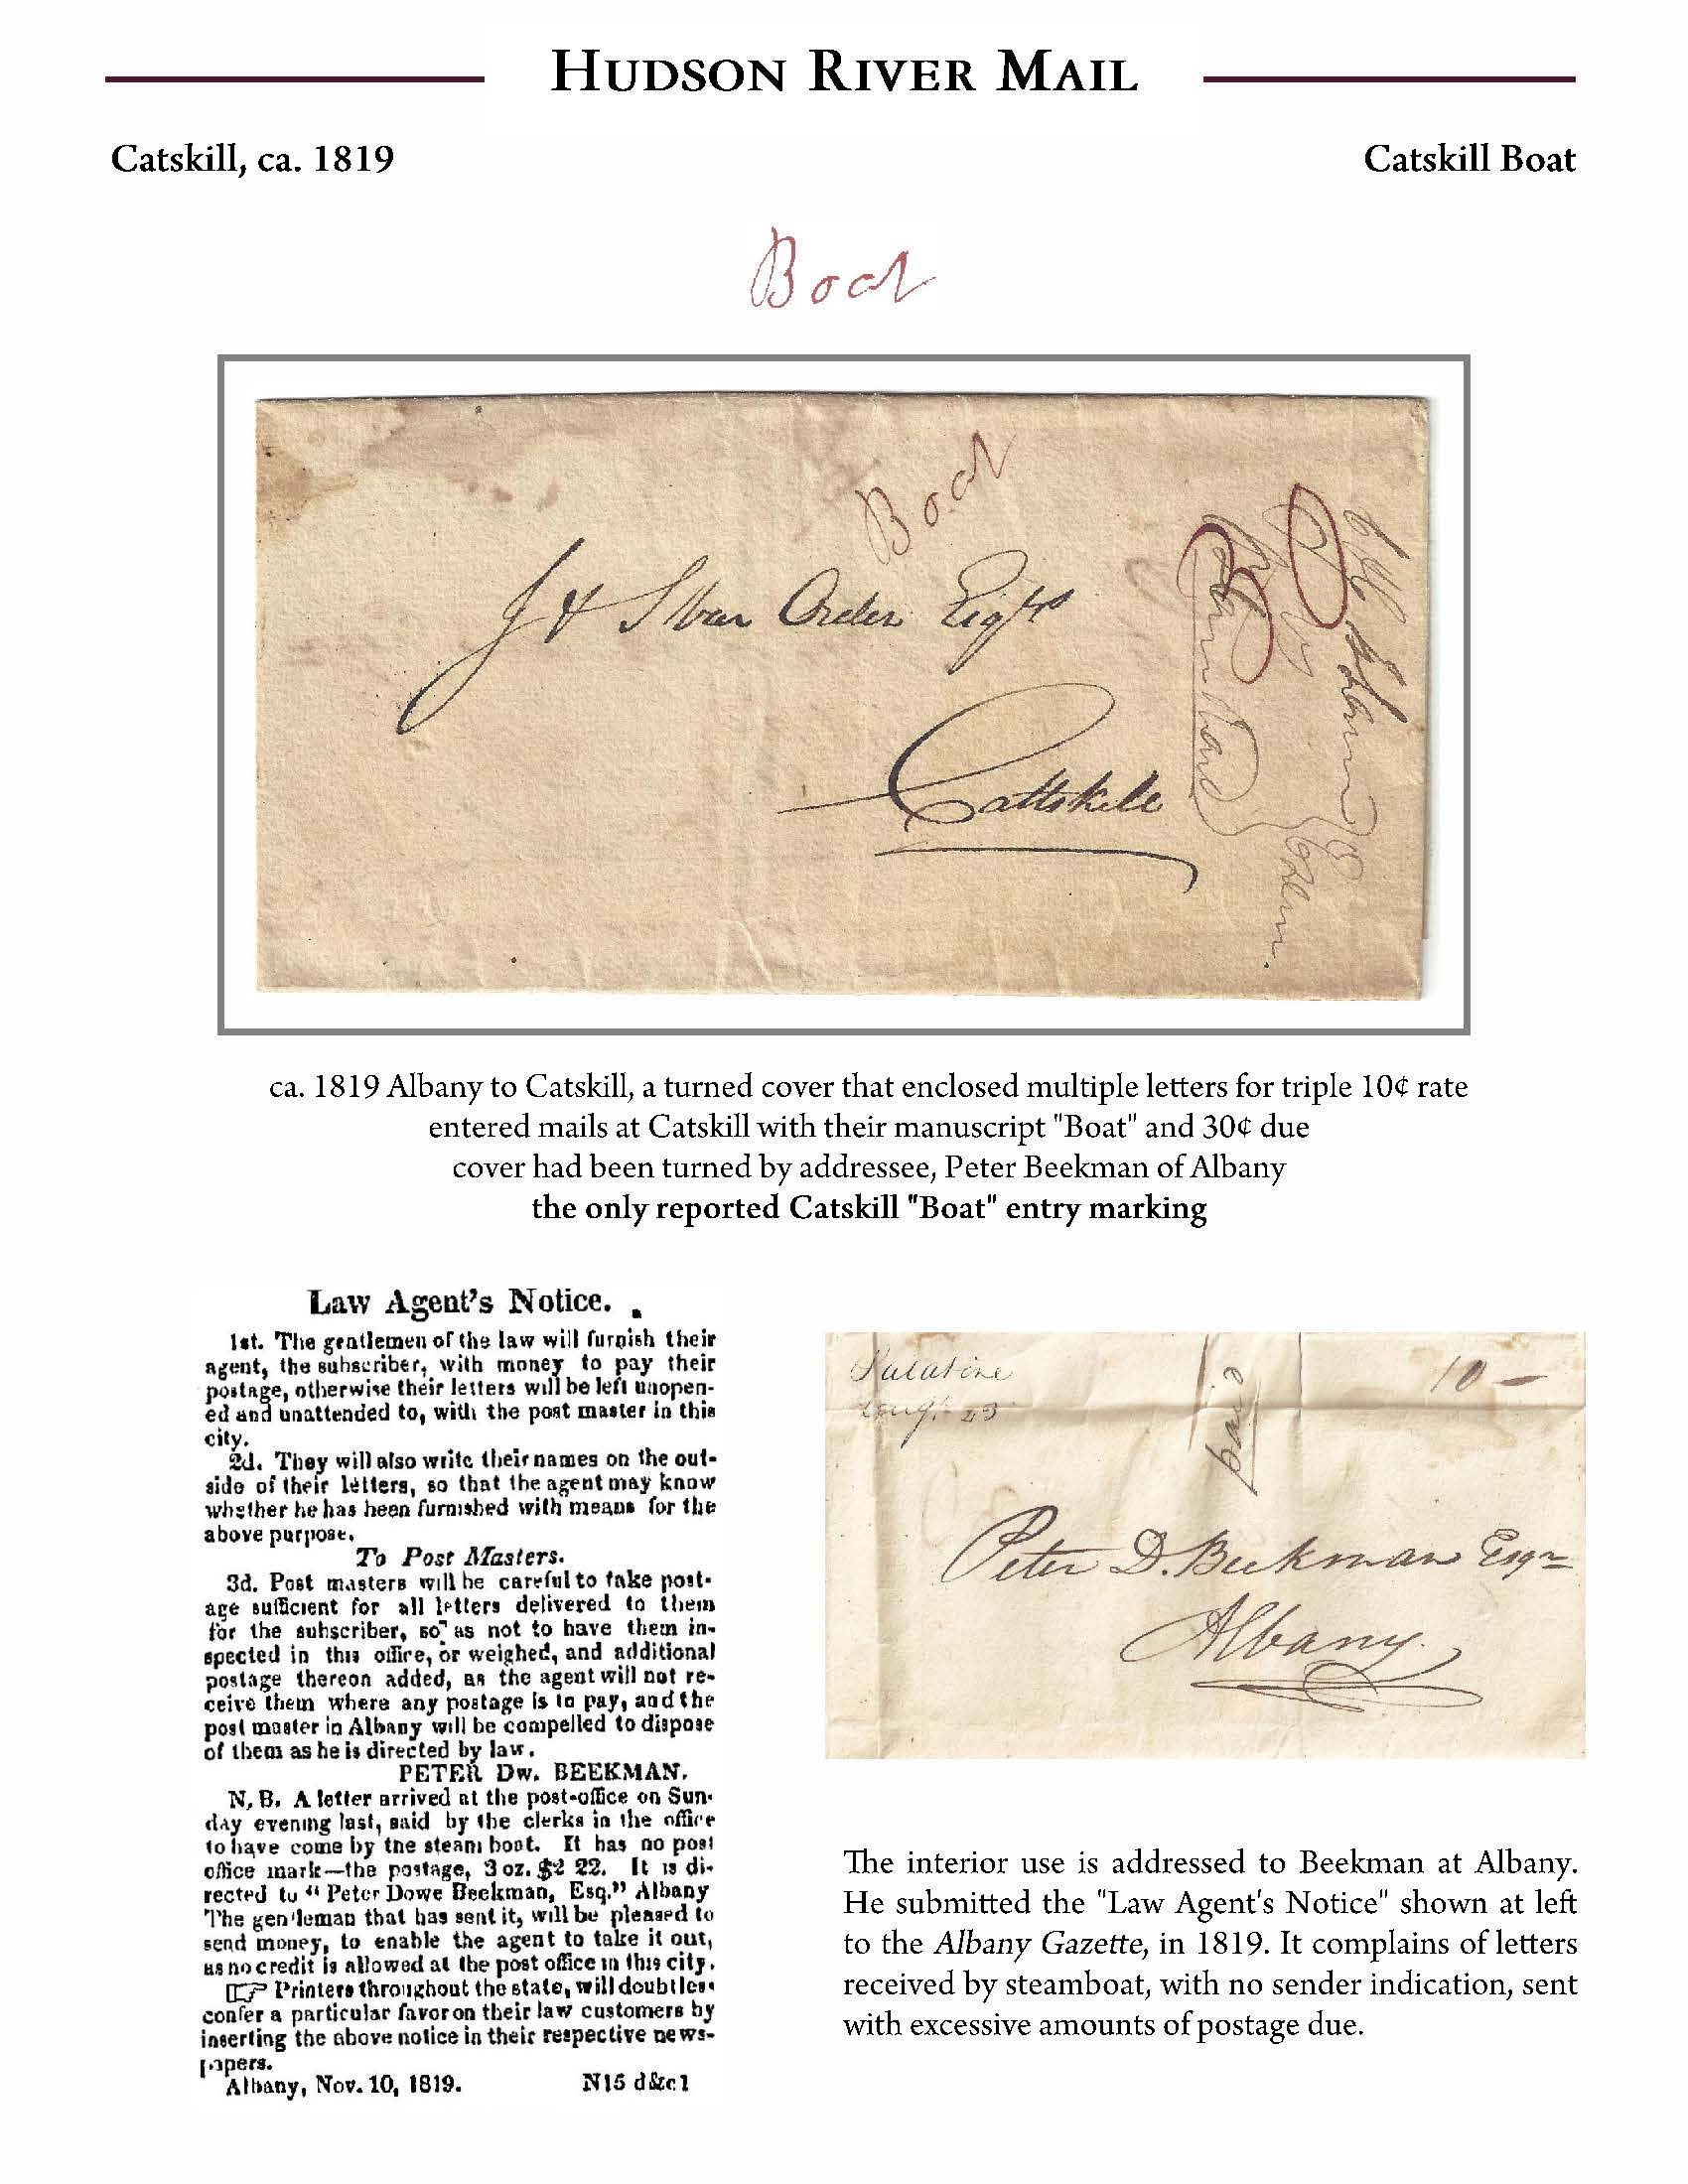 HUDSON RIVER MAIL
Catskill, ca. 1819
Catskill Boat
Boat
Boat
J & S Van Orden Esqrs
Cattskill
30
ca. 1819 Albany to Catskill, a turned cover that enclosed multiple letters for triple 10¢ rate
entered mails at Catskill with their manuscript "Boat" and 30¢ due
cover had been turned by addressee, Peter Beekman of Albany
the only reported Catskill "Boat" entry marking
Law Agent's Notice.
1st. The gentlemen of the law will furnish their
agent, the subscriber, with money to pay their
postage, otherwise their letters will be left unopen-
ed and unattended to, with the post master in this
city.
2d. They will also write their names on the out-
side of their letters, so that the agent may know
whether he has been furnished with means for the
above purpose.
To Post Masters.
3d. Post masters will be careful to take post-
age sufficient for all letters delivered to them
for the subscriber, so as not to have them in-
spected in this office, or weighed, and additional
postage thereon added, as the agent will not re-
ceive them where any postage is to pay, and the
post master in Albany will be compelled to dispose
of them as he is directed by law.
PETER Dw. BEEKMAN.
N. B. A letter arrived at the post-office on Sun-
day evening last, said by the clerks in the office
to have come by the steam boat. It has no post
office mark—the postage, 3 oz. $2 22. It is di-
rected to "Peter Dowe Beekman, Esq." Albany
The gentleman that has sent it, will be pleased to
send money, to enable the agent to take it out,
as no credit is allowed at the post office in this city.
☞ Printers throughout the state, will doubtless
confer a particular favor on their law customers by
inserting the above notice in their respective news-
papers.
Albany, Nov. 10, 1819. N15 d&c1
Palatine
Augt 23
paid
10 —
Peter D. Beekman Esqr
Albany
The interior use is addressed to Beekman at Albany.
He submitted the "Law Agent's Notice" shown at left
to the Albany Gazette, in 1819. It complains of letters
received by steamboat, with no sender indication, sent
with excessive amounts of postage due.